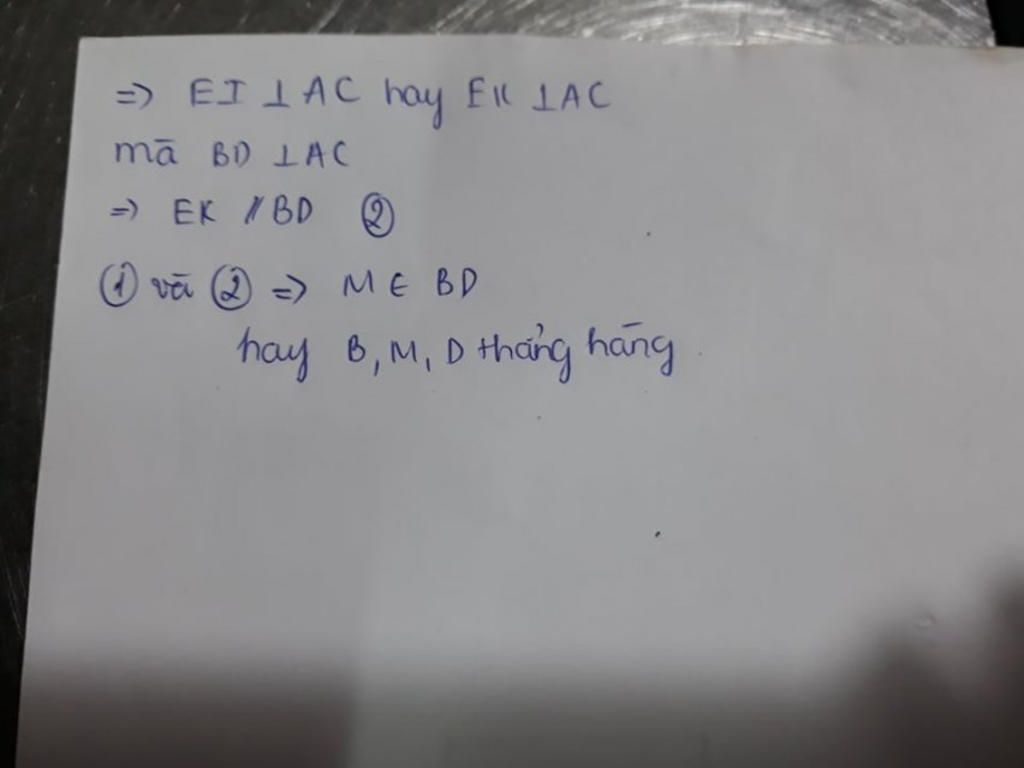 => EI ⊥ AC hay EK ⊥ AC
mà BD ⊥ AC
=> EK // BD ②
① và ② => M ∈ BD
hay B, M, D thẳng hàng